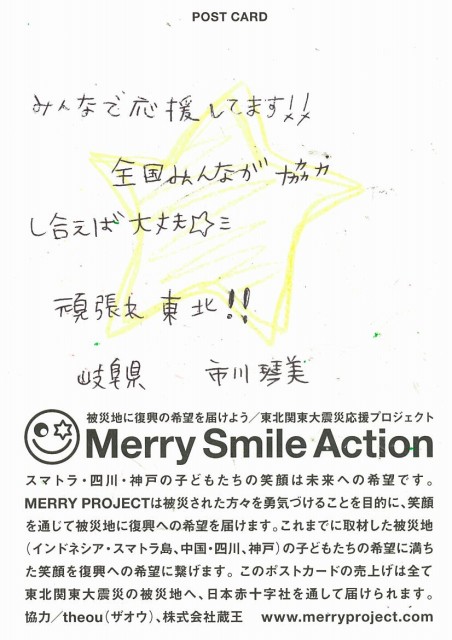 POST CARD
みんなで応援してます!!
全国みんなが協力
し合えば大丈夫☆ミ
頑張れ東北!!
岐阜県 市川琴美
被災地に復興の希望を届けよう/東北関東大震災応援プロジェクト
Merry Smile Action
スマトラ・四川・神戸の子どもたちの笑顔は未来への希望です。
MERRY PROJECTは被災された方々を勇気づけることを目的に、笑顔
を通じて被災地に復興への希望を届けます。これまでに取材した被災地
(インドネシア・スマトラ島、中国・四川、神戸)の子どもたちの希望に満ち
た笑顔を復興への希望に繋げます。このポストカードの売上げは全て
東北関東大震災の被災地へ、日本赤十字社を通して届けられます。
協力/theou(ザオウ)、株式会社蔵王 www.merryproject.com